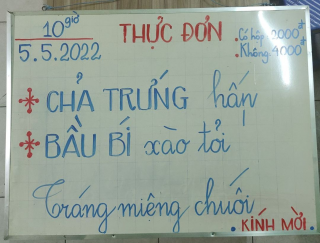 10 giờ
5.5.2022
THỰC ĐƠN
. Có hộp 2.000đ
. Không 4.000đ
* CHẢ TRỨNG hấp
* BẦU BÍ xào tỏi
Tráng miệng chuối
. KÍNH MỜI .